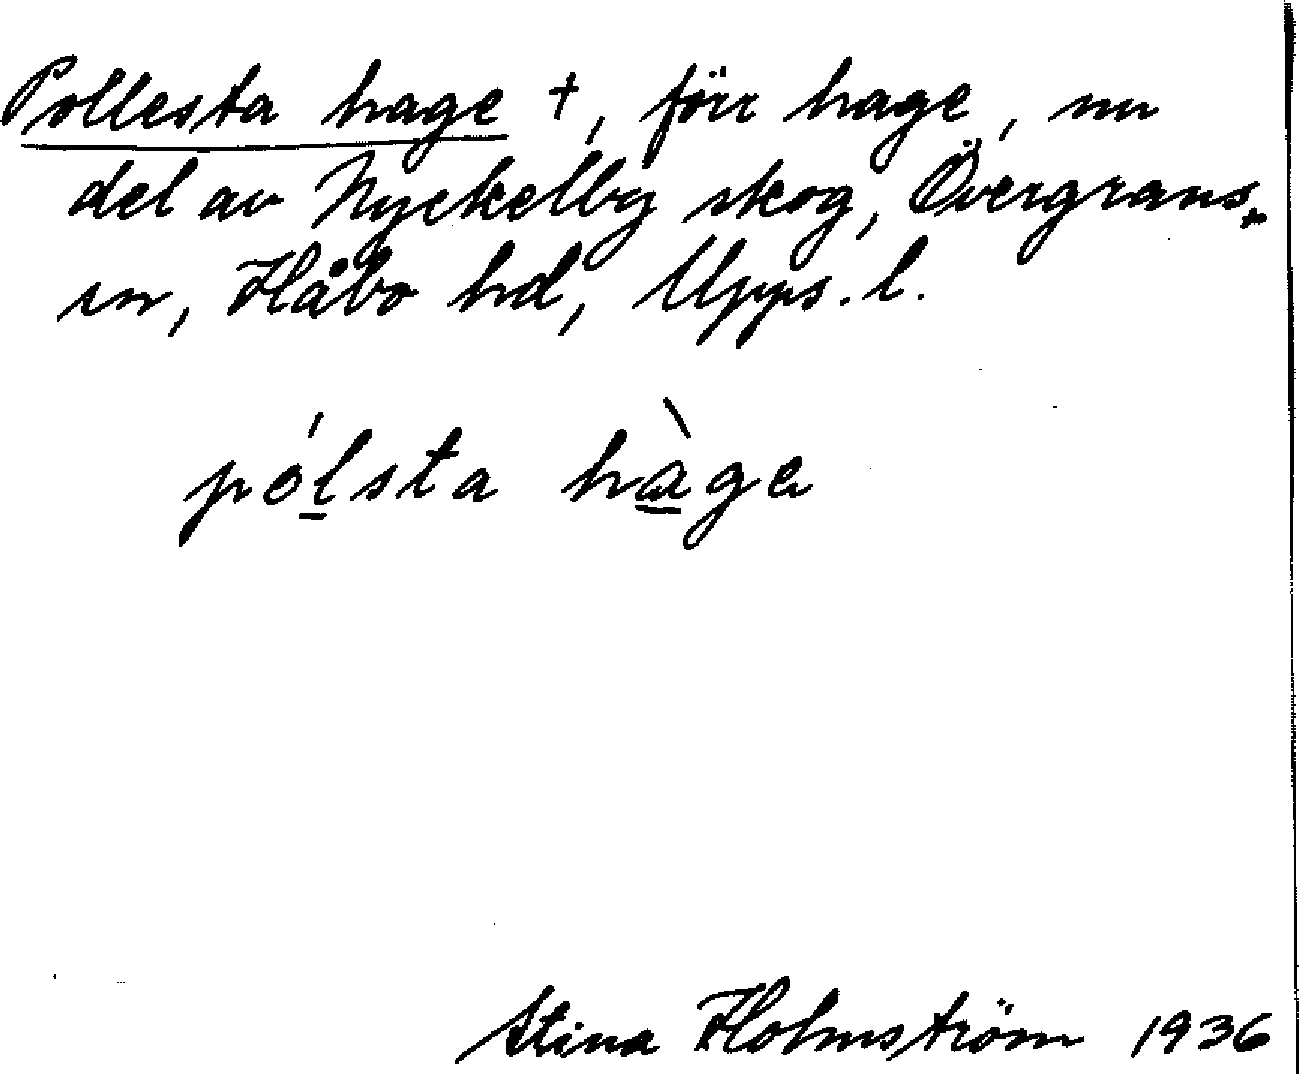 Pollesta hage †, förr hage, nu
del av Nyckelby skog, Övergrans
sn, Håbo hd, Upps. l.
pólsta hàge
Stina Holmström 1936